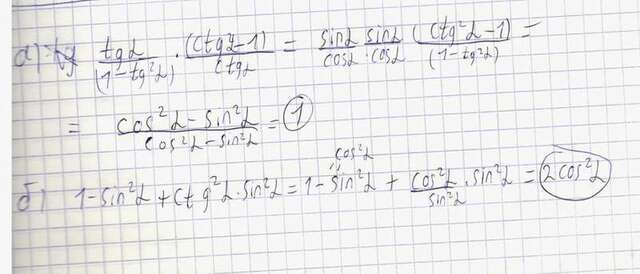 а) tg tgα/(1-tg²α) · (ctg²α-1)/ctgα = sinα/cosα · sinα/cosα (ctg²α-1)/(1-tg²α) =
= cos²α-sin²α/cos²α-sin²α = 1
cos²α
б) 1-sin²α+ctg²α·sin²α = 1-sin²α + cos²α/sin²α · sin²α = 2cos²α